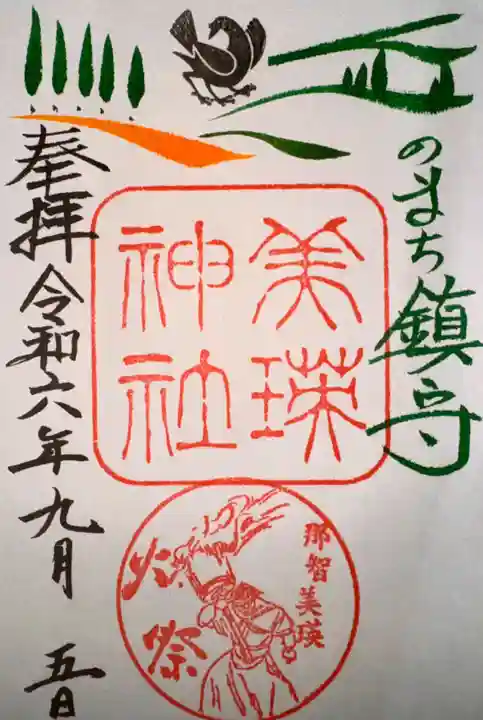 のまち鎮守
美瑛
神社
奉拝
令和六年九月 五日
那智美瑛
火祭